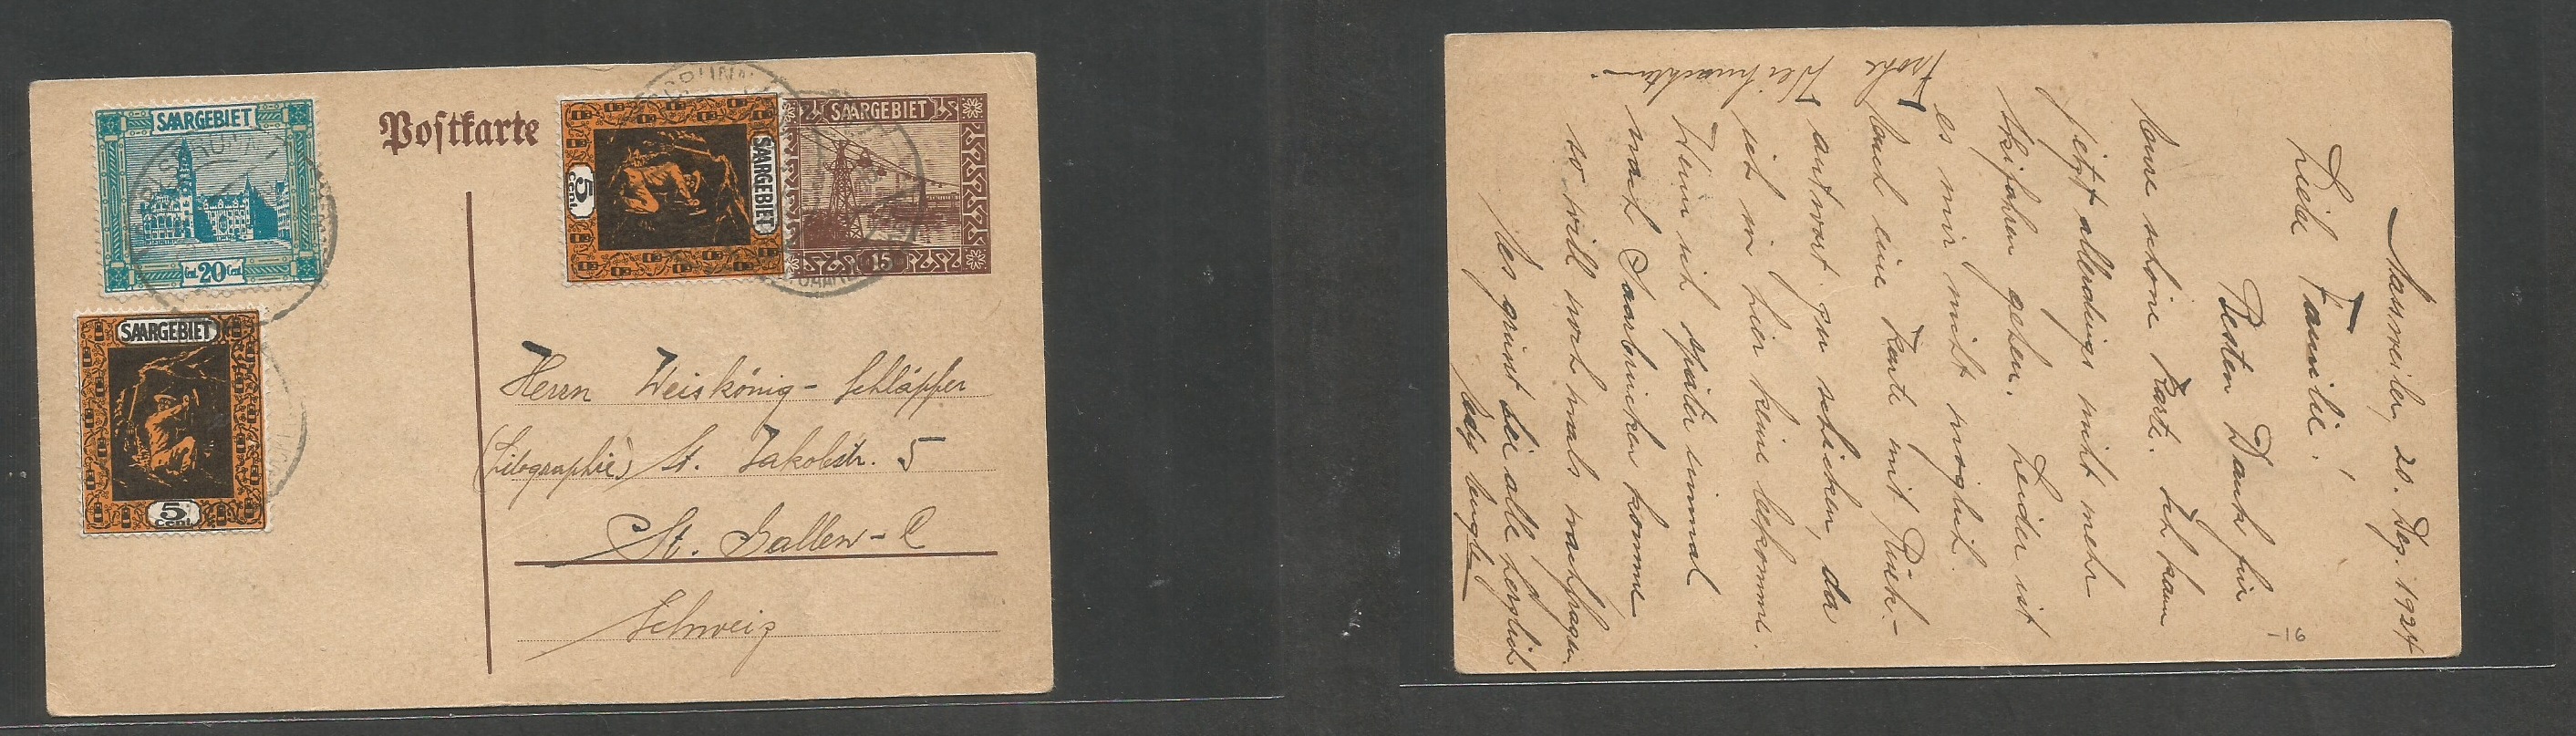 Postkarte
SAARGEBIET
Cent. 20 Cent.
SAARGEBIET
5
Cent.
SAARGEBIET
5
Cent.
SAARGEBIET
15
Herrn Weiskönig - Schläpfer
St. Jakobstr. 5
St. Gallen - C
Schweiz
20. Dez. 1924
Liebe Familie!
Besten Dank für
schöne Karte. Ich kann
jetzt allerdings nicht mehr
skifahren gehen. Leider ist
es mir nicht möglich
auch eine Karte mit Rück-
antwort zu schicken, da
ich in hier keine bekomme.
Wenn ich später einmal
nach Saarbrücken komme
so will ich nochmals nachfragen.
Es grüsst Sie alle herzlich
Frohe Weihnachten
-16